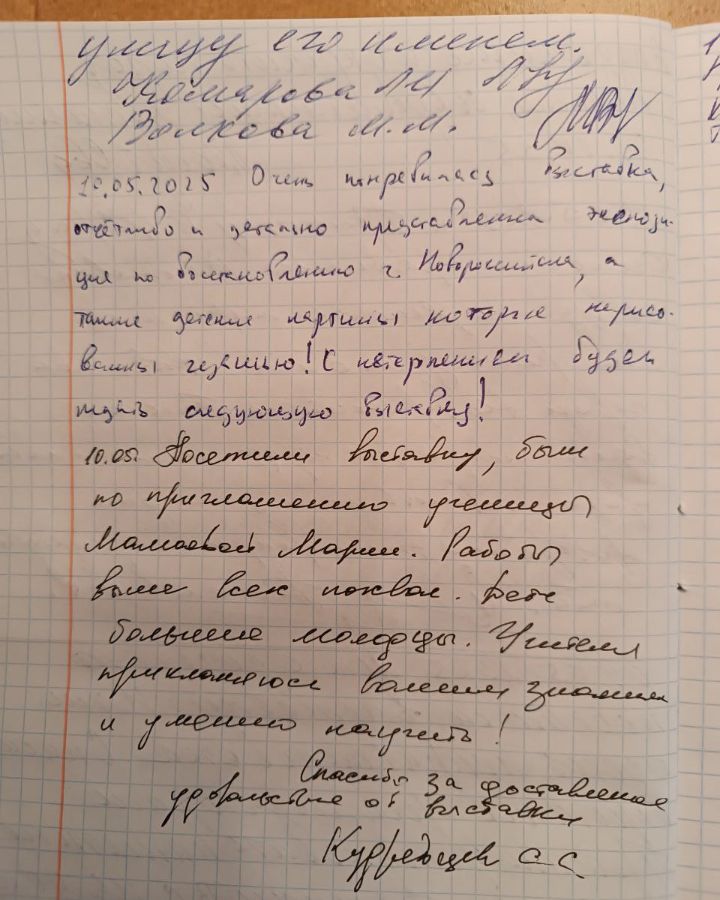 улицу его именем.
Комарова Л И
Волкова М. М.
10.05.2025 Очень понравилась выставка,
отчётливо и детально представлена экспози-
ция по восстановлению г. Новороссийска, а
также детские картины которые нарисо-
ванны гуашью! С нетерпением будем
ждать следующую выставку!
10.05. Посетили выставку, были
по приглашению ученицы
Марии. Работы
выше всех похвал. Дети
большие молодцы. Учителя
приклоняюсь вашим знаниям
и умению научить!
Спасибо за доставленое
удовольствие от выставки
С С